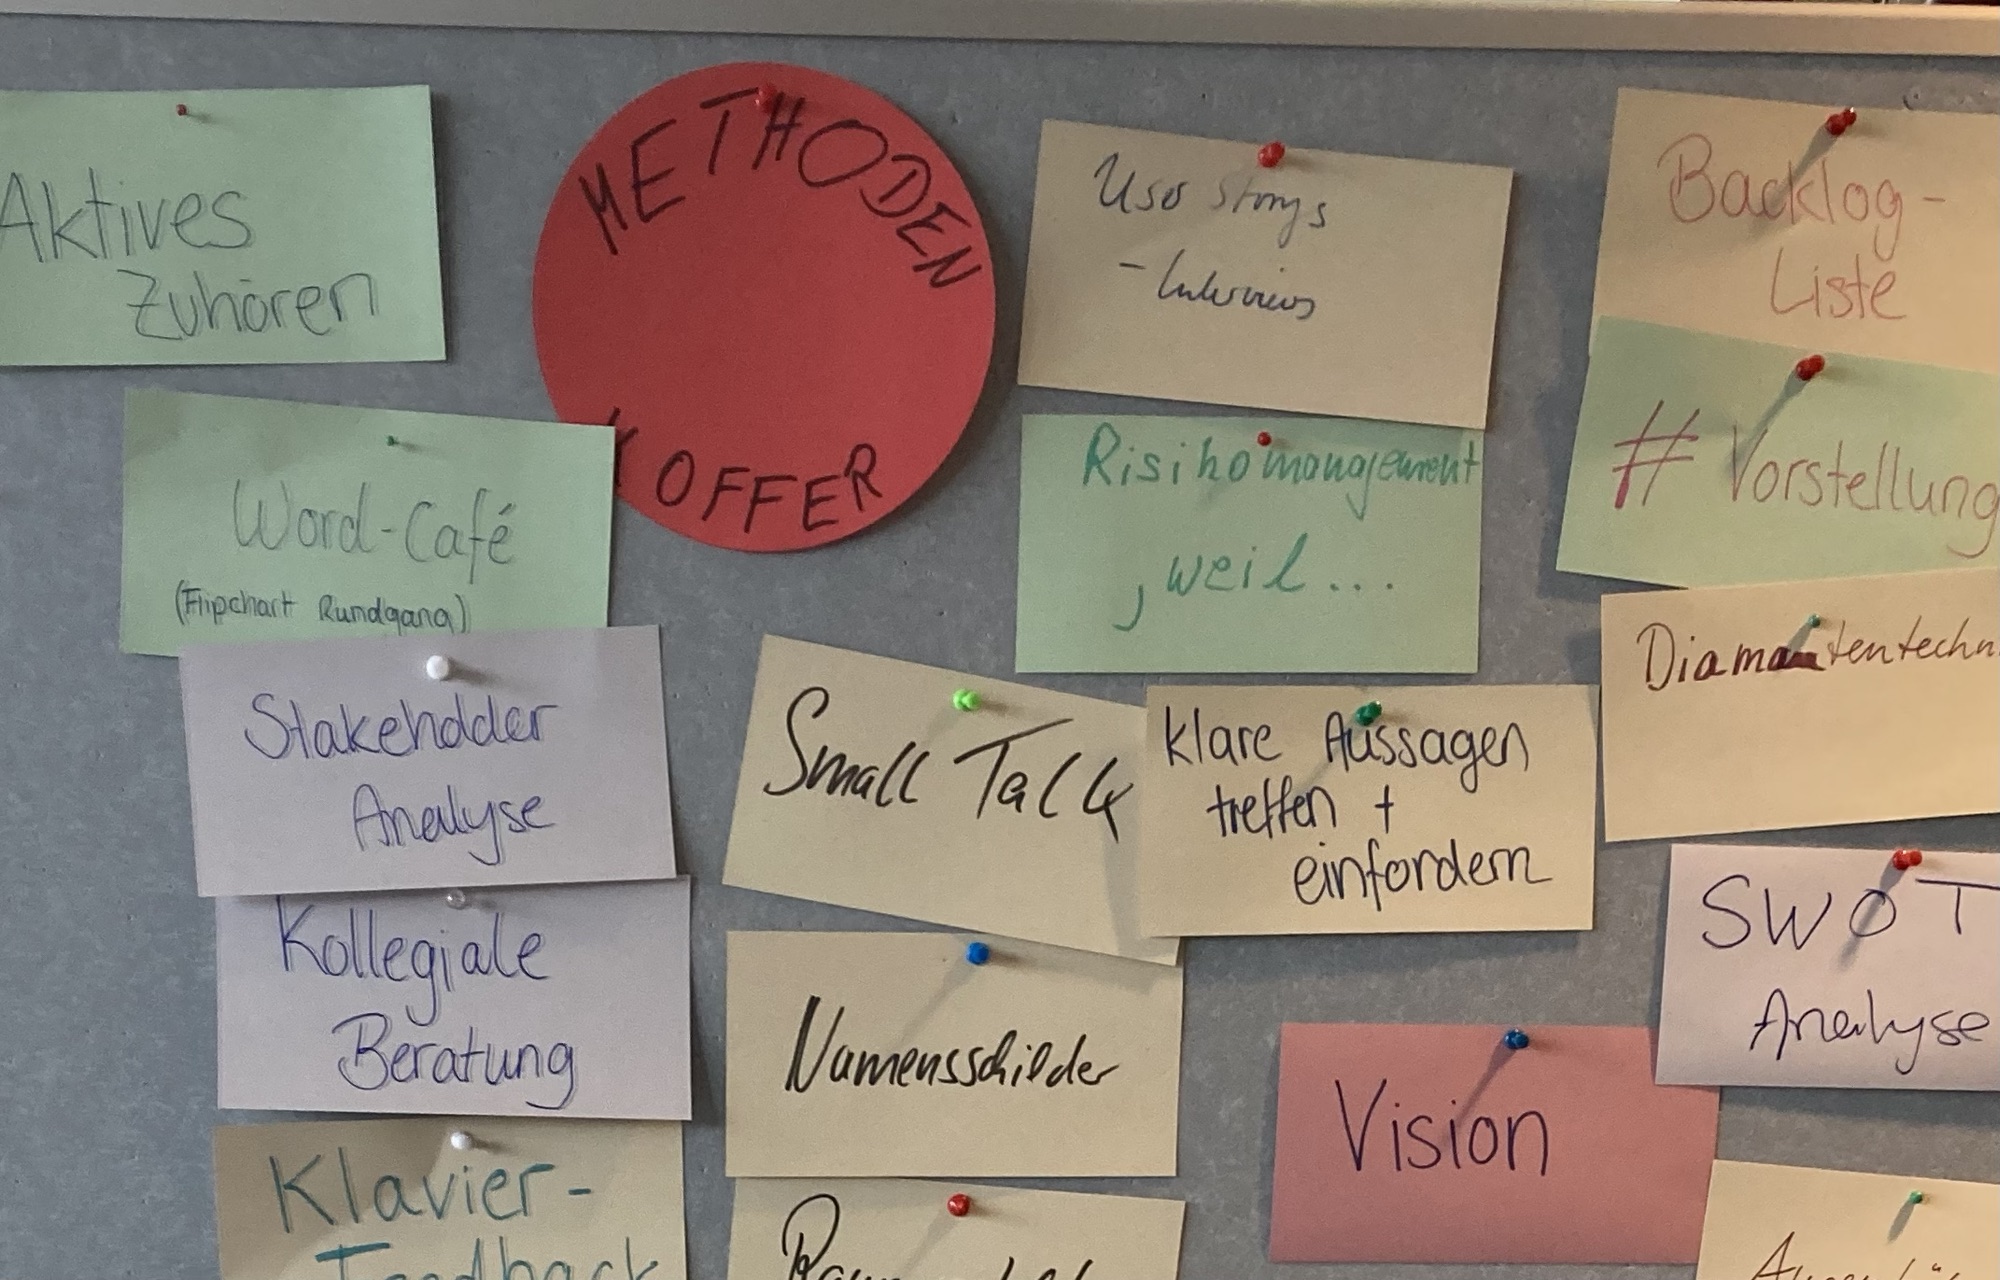 Aktives
Zuhören
METHODEN
KOFFER
User Storys
- Interviews
Backlog-
Liste
Word-Café
(Flipchart Rundgang)
Risikomanagement
, weil...
# Vorstellung
Stakeholder
Analyse
Small Talk
klare Aussagen
treffen +
einfordern
Diamantentechn
SWOT
Analyse
Kollegiale
Beratung
Namensschilder
Vision
Klavier-
Feedback